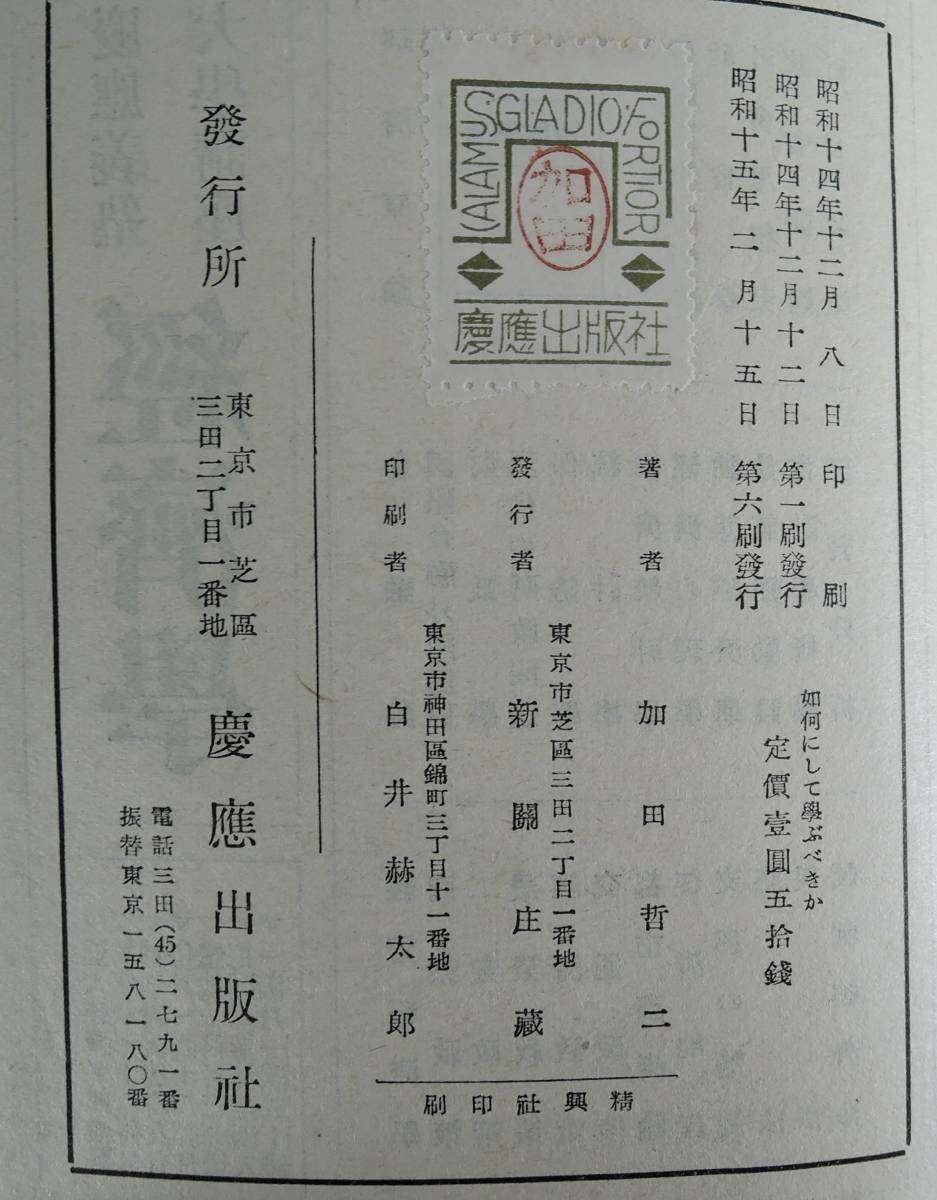 昭和十四年十二月八日 印刷
昭和十四年十二月十二日 第一刷發行
昭和十五年二月十五日 第六刷發行
如何にして學ぶべきか
定價壹圓五拾錢
CALAMUS·GLADIO·FORTIOR
加田
慶應出版社
著者 加田哲二
東京市芝區三田二丁目一番地
發行者 新關庄藏
東京市神田區錦町三丁目十一番地
印刷者 白井赫太郎
精興社印刷
發行所
東京市芝區
三田二丁目一番地
慶應出版社
電話三田(45)二七九一番
振替東京一五八一八〇番